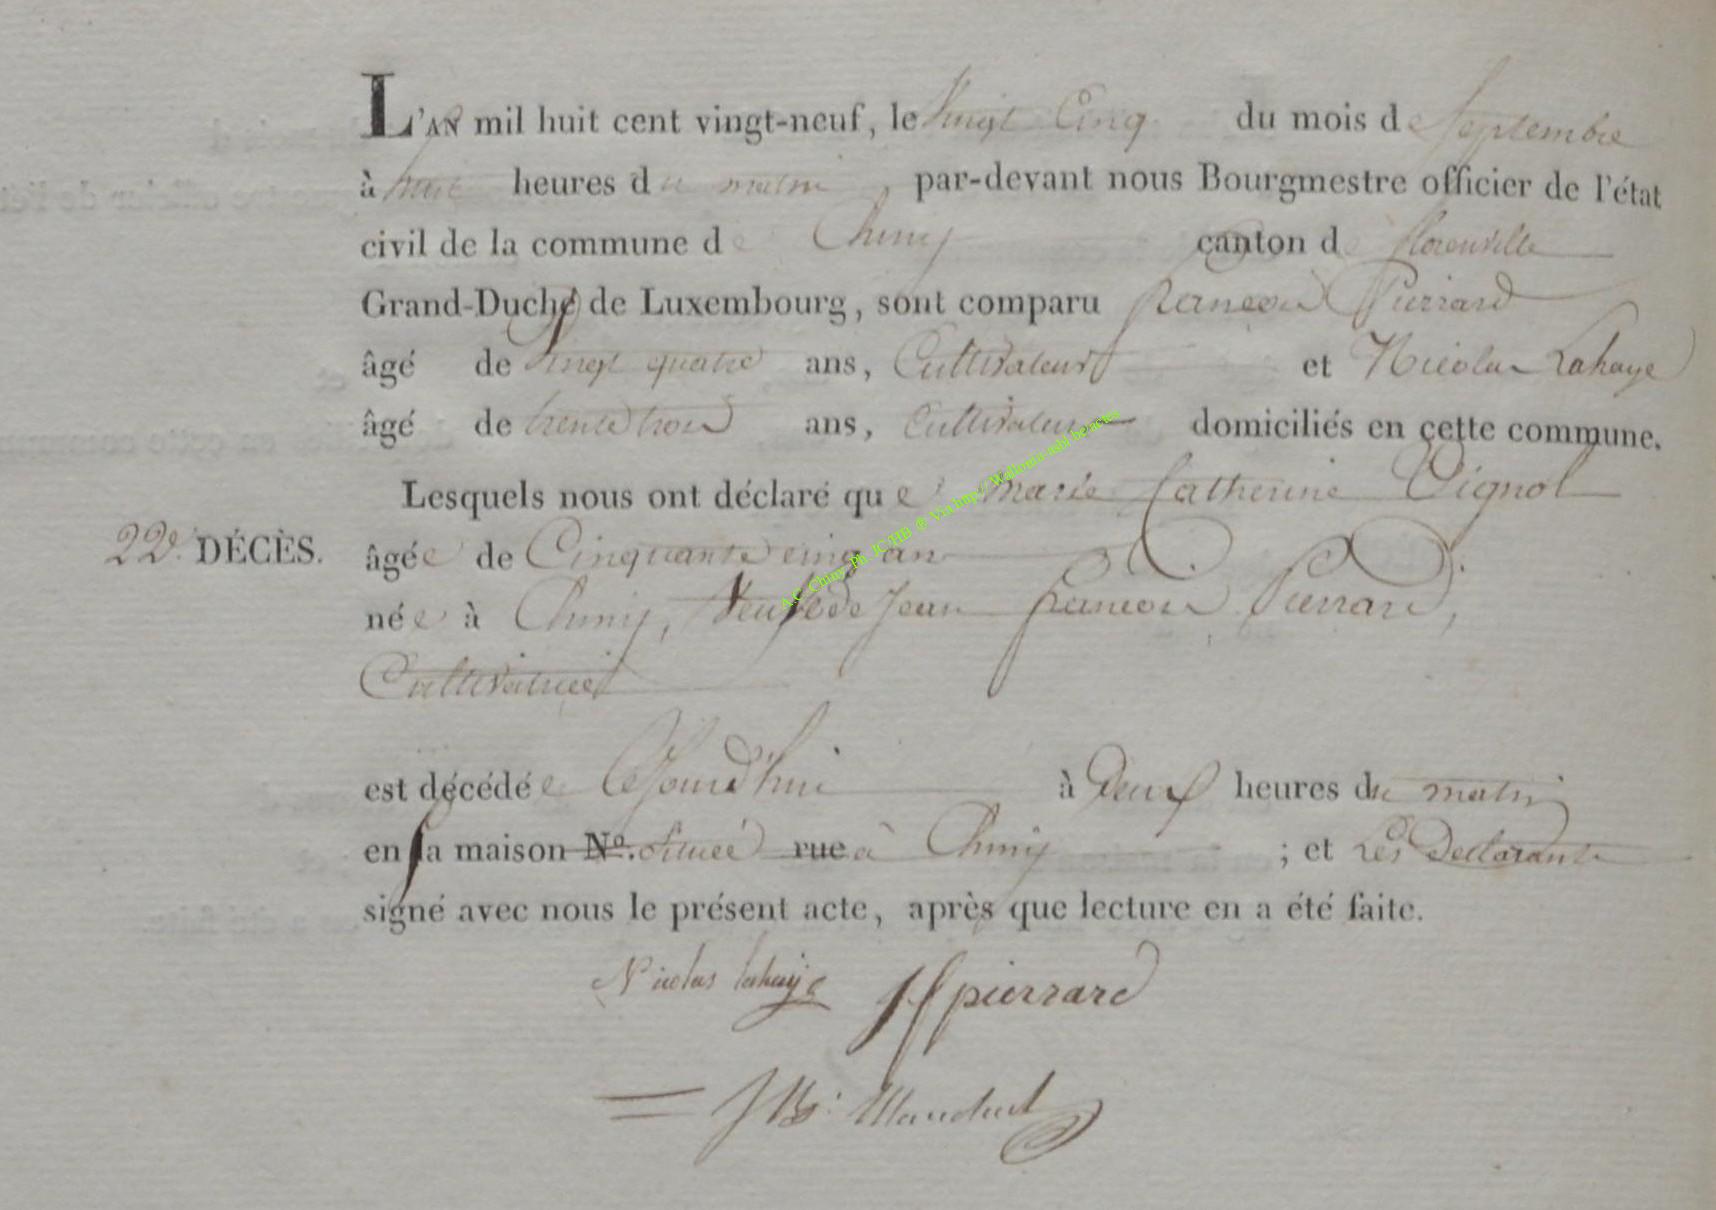 L'AN mil huit cent vingt-neuf, le Vingt Cinq du mois de Septembre
à huit heures du matin, par-devant nous Bourgmestre officier de l'état
civil de la commune de Chiny canton de florenville
Grand-Duché de Luxembourg, sont comparu francois Pierrard
âgé de Vingt quatre ans, Cultivateur et Nicolas Lahaye
âgé de trente trois ans, Cultivateur domiciliés en cette commune.
Lesquels nous ont déclaré que marie Catherine Pignol
22e. DÉCÈS.
âgée de Cinquante cinq an
née à Chiny, Veuve de Jean francois Pierrard,
Cultivatrice
est décédée Cejourd'hui à Deux heures du matin
en sa maison No. située rue à Chiny ; et Les Declarants
signé avec nous le présent acte, après que lecture en a été faite.
Nicolas lahaye JF pierrard
JB:
A.C. Chiny Ph JC-HB ® Via http://Wallonia-asbl.be/actes